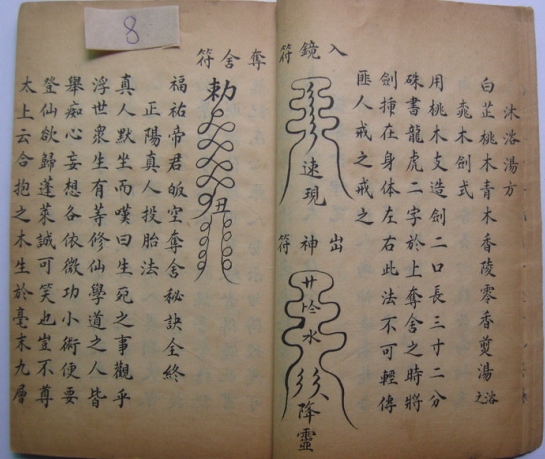 沐浴湯方
白芷桃木青木香陵零香煎湯浴之
桃木劍式
用桃木支造劍二口長三寸二分
硃書龍虎二字於上奪舍之時將
劍挿在身体左右此法不可輕傳
匪人戒之戒之
入鏡符
速現
出神符
水
降靈
奪舍符
勅
丑
福祐帝君皈空奪舍秘訣全終
正陽真人投胎法
真人默坐而嘆曰生死之事觀乎
浮世衆生有等修仙學道之人皆
舉痴心妄想各依微功小術便要
登仙欲歸蓬萊誠可笑也豈不尊
太上云合抱之木生於毫末九層
8